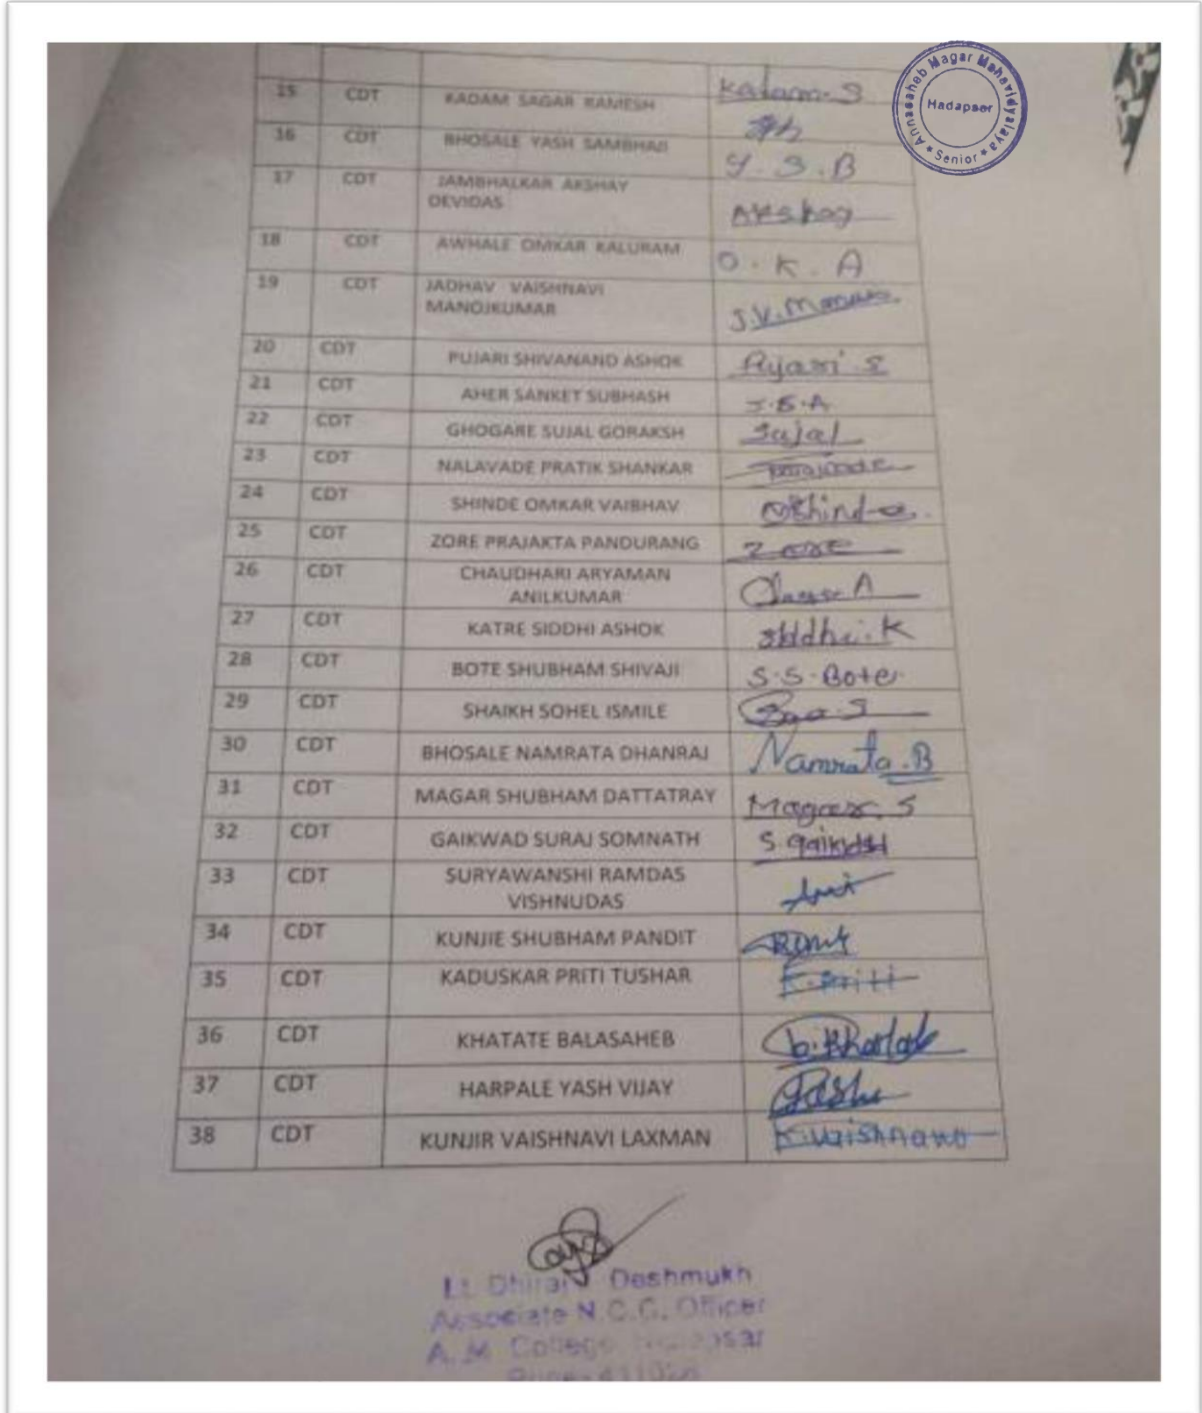 Annasaheb Magar Mahavidyalaya
Hadapser
* Senior *
15 CDT KADAM SAGAR RAMESH Kadam.S
16 CDT BHOSALE YASH SAMBHAJI Y.S.B
17 CDT JAMBHALKAR AKSHAY
DEVIDAS Akshay
18 CDT AWHALE OMKAR KALURAM O.K.A
19 CDT JADHAV VAISHNAVI
MANOJKUMAR J.V.
20 CDT PUJARI SHIVANAND ASHOK Pujari.S
21 CDT AHER SANKET SUBHASH
22 CDT GHOGARE SUJAL GORAKSH Sujal
23 CDT NALAVADE PRATIK SHANKAR
24 CDT SHINDE OMKAR VAIBHAV
25 CDT ZORE PRAJAKTA PANDURANG Zore
26 CDT CHAUDHARI ARYAMAN
ANILKUMAR
27 CDT KATRE SIDDHI ASHOK Siddhi.K
28 CDT BOTE SHUBHAM SHIVAJI S.S.Bote
29 CDT SHAIKH SOHEL ISMILE
30 CDT BHOSALE NAMRATA DHANRAJ Namrata.B
31 CDT MAGAR SHUBHAM DATTATRAY Magar.S
32 CDT GAIKWAD SURAJ SOMNATH
33 CDT SURYAWANSHI RAMDAS
VISHNUDAS
34 CDT KUNJIE SHUBHAM PANDIT
35 CDT KADUSKAR PRITI TUSHAR K.Priti
36 CDT KHATATE BALASAHEB
37 CDT HARPALE YASH VIJAY
38 CDT KUNJIR VAISHNAVI LAXMAN
Lt. Dhiraj Deshmukh
Associate N.C.C. Officer
A. M. College